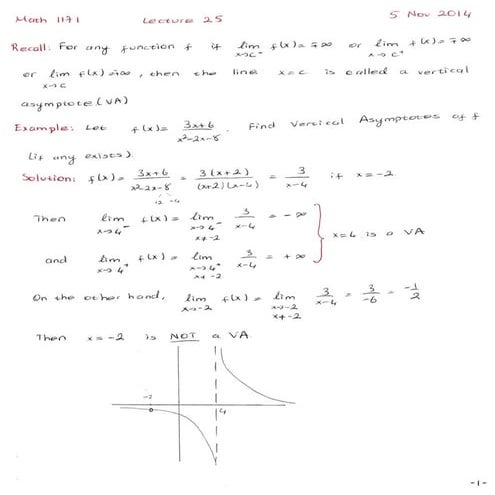 Math 1171 Lecture 25 5 Nov 2014
Recall: For any function f if lim x→c⁻ f(x)=∓∞ or lim x→c⁺ f(x)=∓∞
or lim x→c f(x)=∓∞, then the line x=c is called a vertical
asymptote (VA)
Example: Let f(x)= (3x+6)/(x²-2x-8). Find Vertical Asymptotes of f
(if any exists).
Solution: f(x)= (3x+6)/(x²-2x-8) = 3(x+2)/((x+2)(x-4)) = 3/(x-4) if x=-2
+2 -4
Then lim x→4⁻ f(x)= lim x→4⁻ x≠-2 3/(x-4) = -∞
x=4 is a VA
and lim x→4⁺ f(x)= lim x→4⁺ x≠-2 3/(x-4) = +∞
On the other hand, lim x→-2 f(x)= lim x→-2 x≠-2 3/(x-4) = 3/-6 = -1/2
Then x=-2 is NOT a VA.
-2
4
-1-